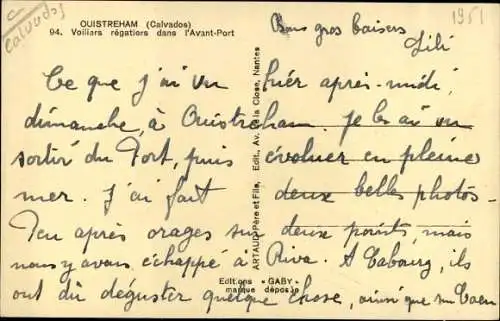 Calvados
OUISTREHAM (Calvados)
94. Voiliers régatiers dans l'Avant-Port
Bons gros baisers
Lili
1951
Ce que j'ai vu hier après-midi,
dimanche, à Ouistreham. Je les ai vu
sortir du Port, puis évoluer en pleine
mer. J'ai fait deux belles photos.
Peu après orages sur deux points, mais
nous y avons échappé à Riva. A Cabourg, ils
ont dû déguster quelque chose, ainsi que sur Caen
ARTAUD Père et Fils, Edit., Av. de la Close, Nantes
Editions "GABY"
marque déposée